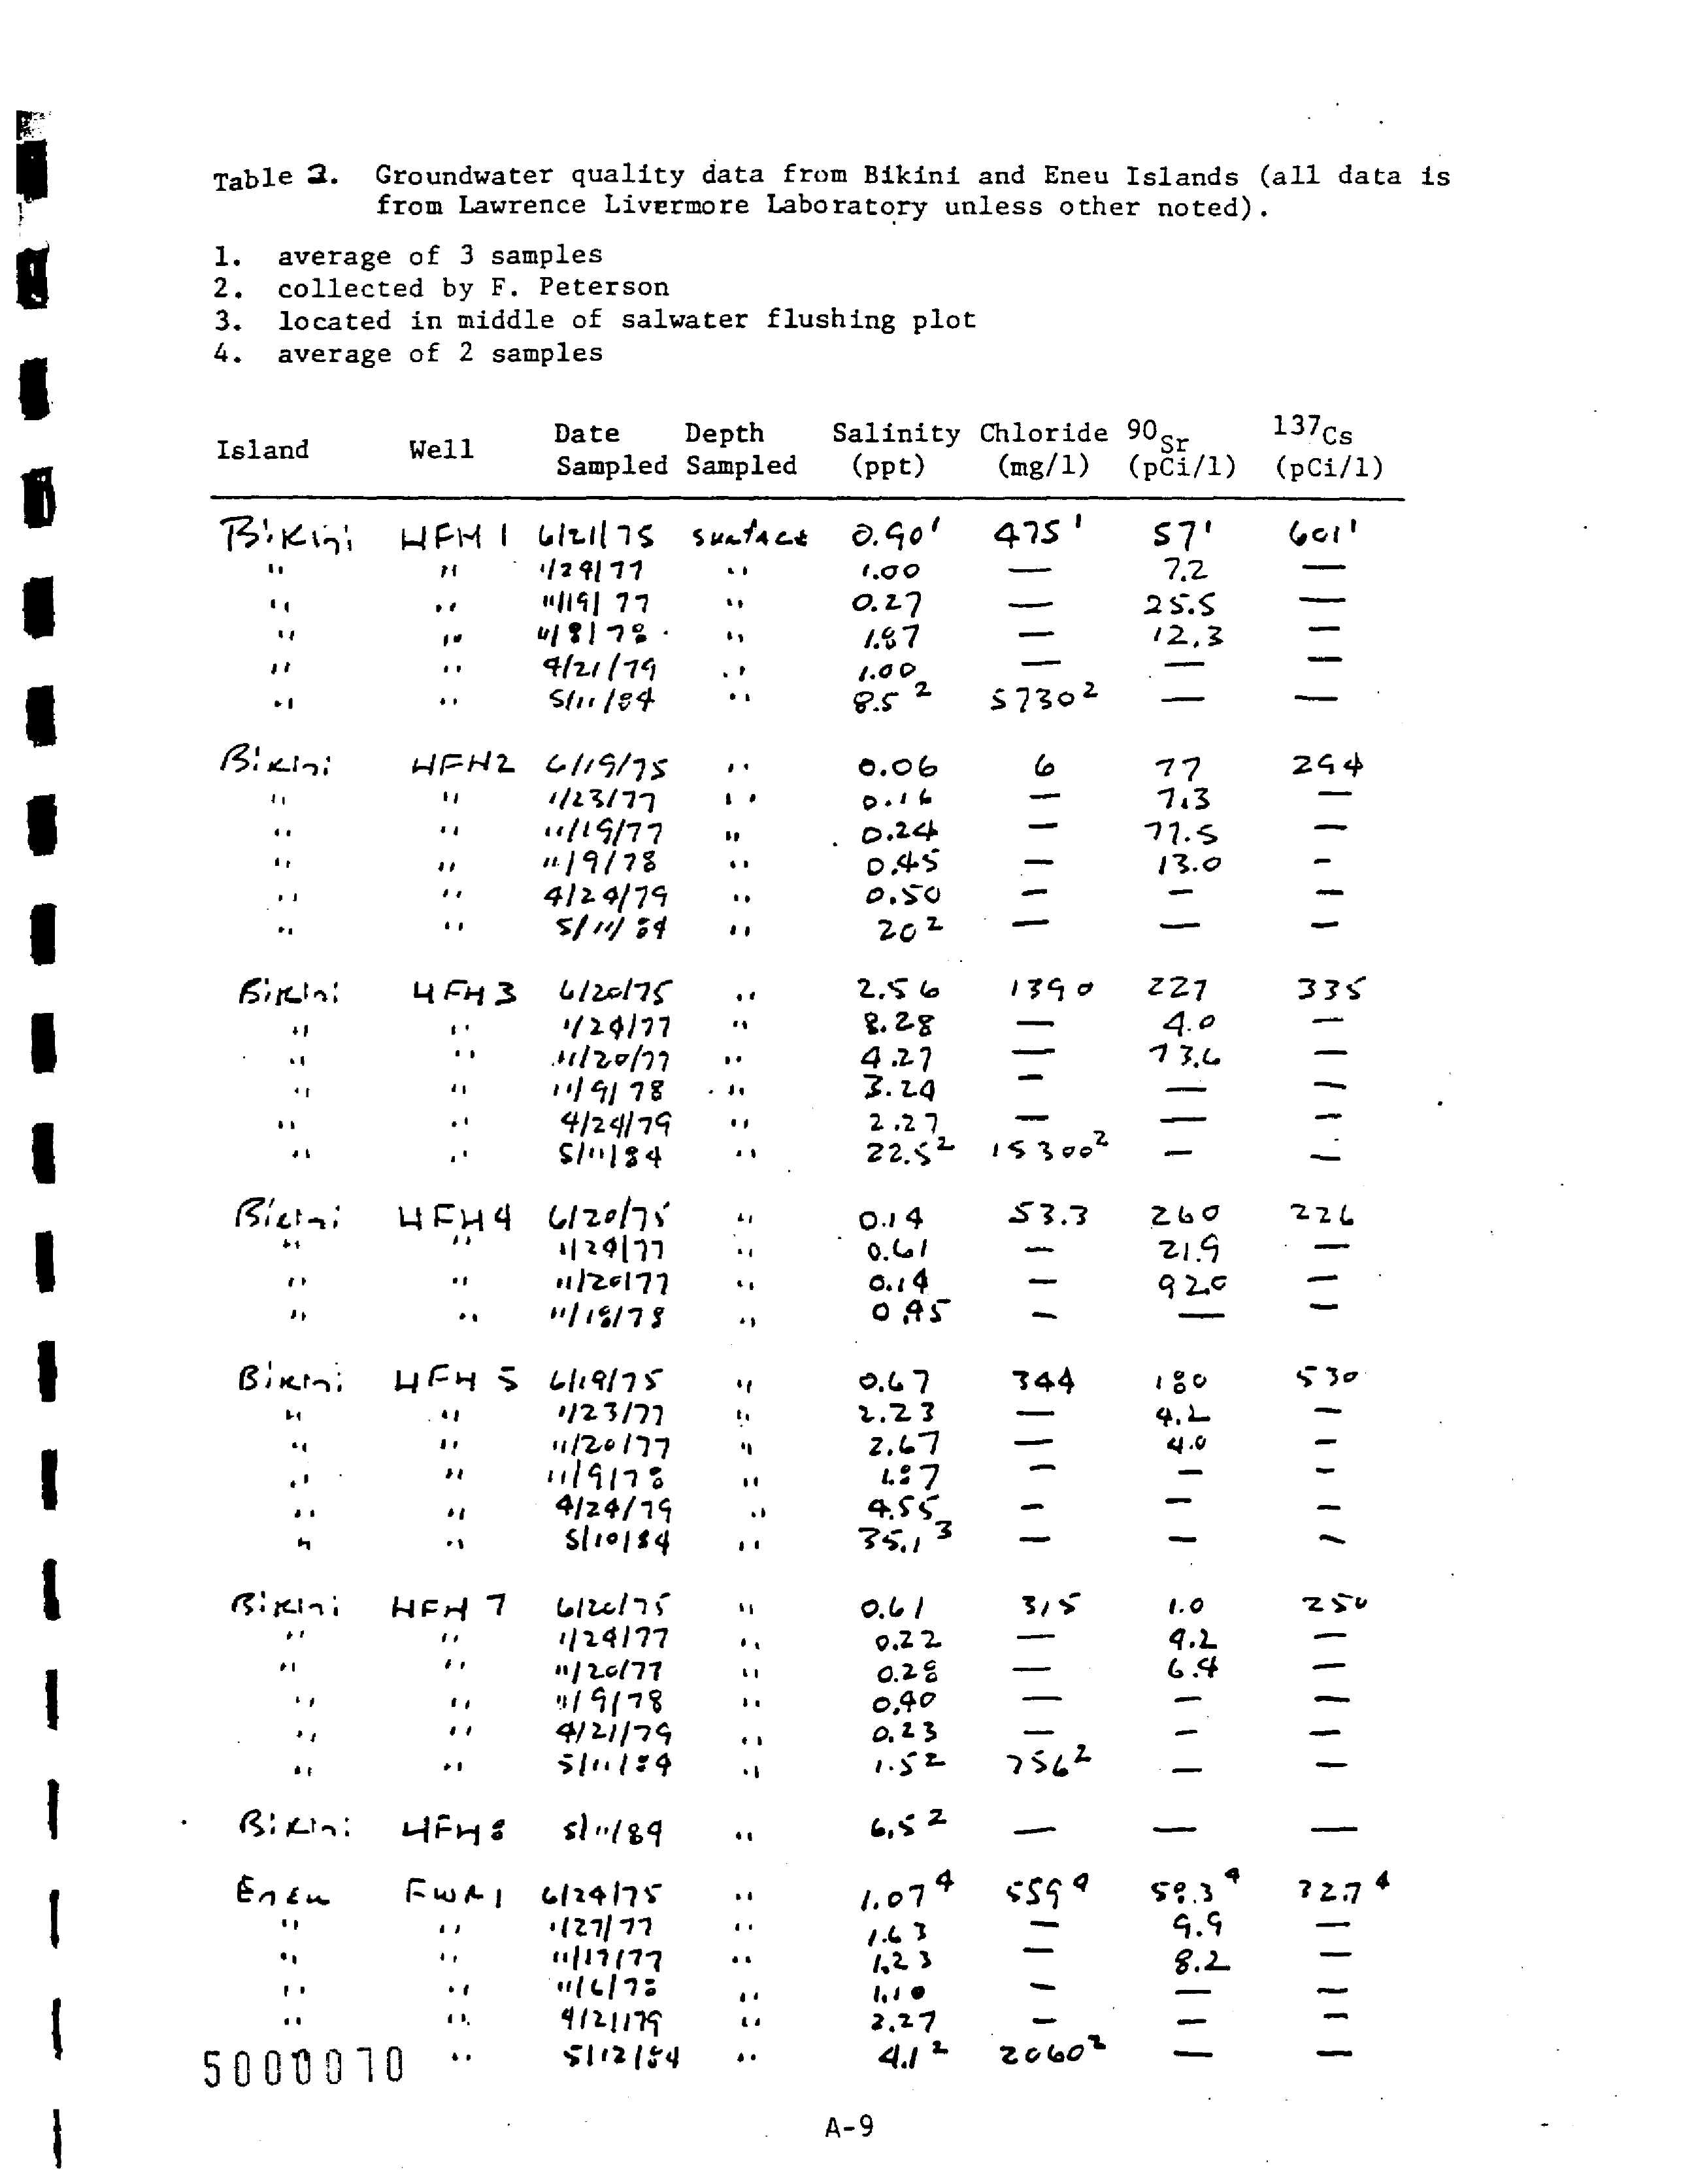 Table 2. Groundwater quality data from Bikini and Eneu Islands (all data is
from Lawrence Livermore Laboratory unless other noted).
1. average of 3 samples
2. collected by F. Peterson
3. located in middle of salwater flushing plot
4. average of 2 samples
Island Well Date Sampled Depth Sampled Salinity (ppt) Chloride (mg/l) 90Sr (pCi/l) 137Cs (pCi/l)
Bikini HFH 1 6/21/75 surface 0.90¹ 475¹ 57¹ 601¹
" " 1/24/77 " 1.00 — 7.2 —
" " 11/19/77 " 0.27 — 25.5 —
" " 11/8/78 " 1.87 — 12.3 —
" " 4/21/79 " 1.00 — — —
" " 5/11/84 " 8.5² 5730² — —
Bikini HFH2 6/19/75 " 0.06 6 77 294
" " 1/23/77 " 0.16 — 7.3 —
" " 11/19/77 " 0.24 — 77.5 —
" " 11/9/78 " 0.45 — 13.0 —
" " 4/24/79 " 0.50 — — —
" " 5/11/84 " 20² — — —
Bikini HFH3 6/20/75 " 2.56 1390 227 335
" " 1/24/77 " 8.28 — 4.0 —
" " 11/20/77 " 4.27 — 73.6 —
" " 11/9/78 " 3.24 — — —
" " 4/24/79 " 2.27 — — —
" " 5/11/84 " 22.5² 15300² — —
Bikini HFH4 6/20/75 " 0.14 53.3 260 226
" " 1/24/77 " 0.61 — 21.9 —
" " 11/20/77 " 0.14 — 920 —
" " 11/18/78 " 0.45 — — —
Bikini HFH 5 6/19/75 " 0.67 344 180 530
" " 1/23/77 " 2.23 — 4.2 —
" " 11/20/77 " 2.67 — 4.0 —
" " 11/9/78 " 1.87 — — —
" " 4/24/79 " 4.55 — — —
" " 5/10/84 " 35.1³ — — —
Bikini HFH 7 6/20/75 " 0.61 315 1.0 250
" " 1/24/77 " 0.22 — 4.2 —
" " 11/20/77 " 0.28 — 6.4 —
" " 11/9/78 " 0.40 — — —
" " 4/21/79 " 0.23 — — —
" " 5/11/84 " 1.5² 756² — —
Bikini HFH8 5/11/84 " 6.5² — — —
Eneu FWA1 6/24/75 " 1.07⁴ 559⁴ 58.3⁴ 32.7⁴
" " 1/27/77 " 1.63 — 9.9 —
" " 11/17/77 " 1.23 — 8.2 —
" " 11/6/78 " 1.10 — — —
" " 4/21/79 " 2.27 — — —
5000070 " 5/12/84 " 4.1² 2060² — —
A-9